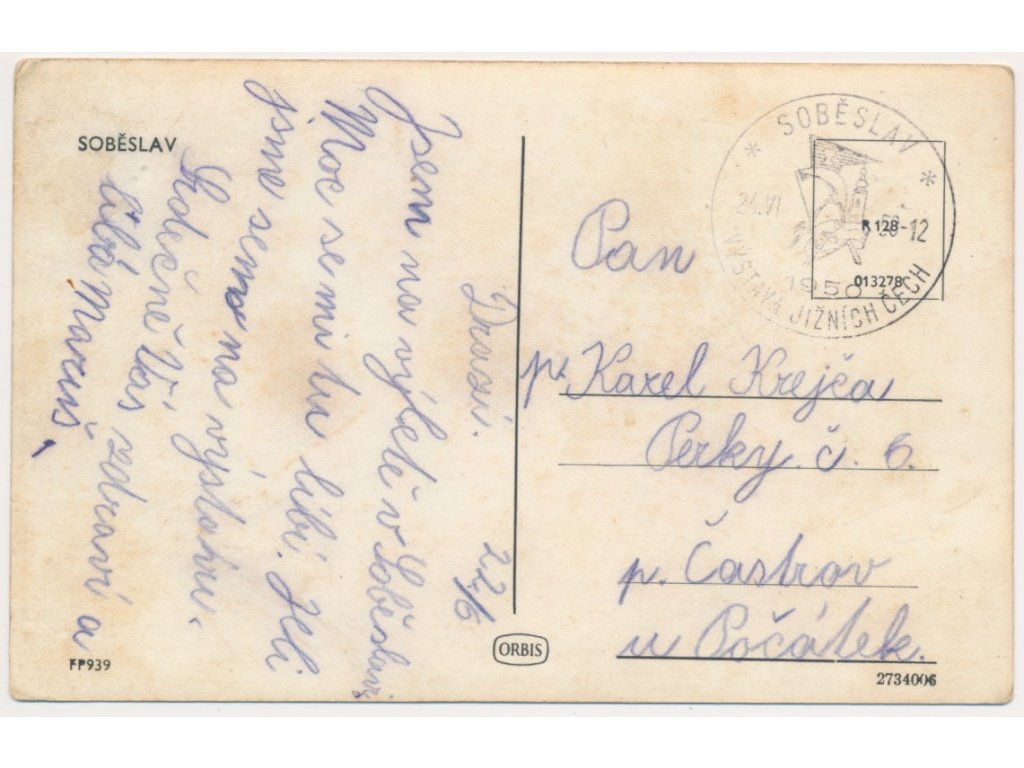 SOBĚSLAV
Drazí. 22/6
Jsem na výletě v Soběslavi
Moc se mi tu líbí. Jeli
jsme sem na výstavu.
Srdečně Vás zdraví a
líbá Maruš.
FP939
ORBIS
SOBĚSLAV
24.VI
50-12
1950
VÝSTAVA JIŽNÍCH ČECH
R 128
013278
Pan
p. Karel Krejča
Perky. č. 6.
p. Častrov
u Počátek.
2734006